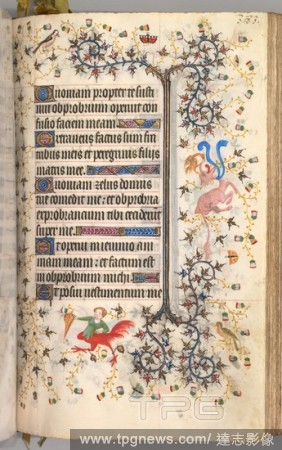 333.
Quoniam propter te susti
nui obprobrium operuit con
fusio faciem meam.
Extraneus factus sum fra
tribus meis et peregrinus filiis
matris mee.
Quoniam zelus domus
tue comedit me: et obprobria
exprobrancium tibi ceciderunt
super me.
Et operui in ieiunio ani
mam meam: et factum est
in obprobrium michi.
Et posui vestimentum me
TPG
www.tpgnews.com/達志影像